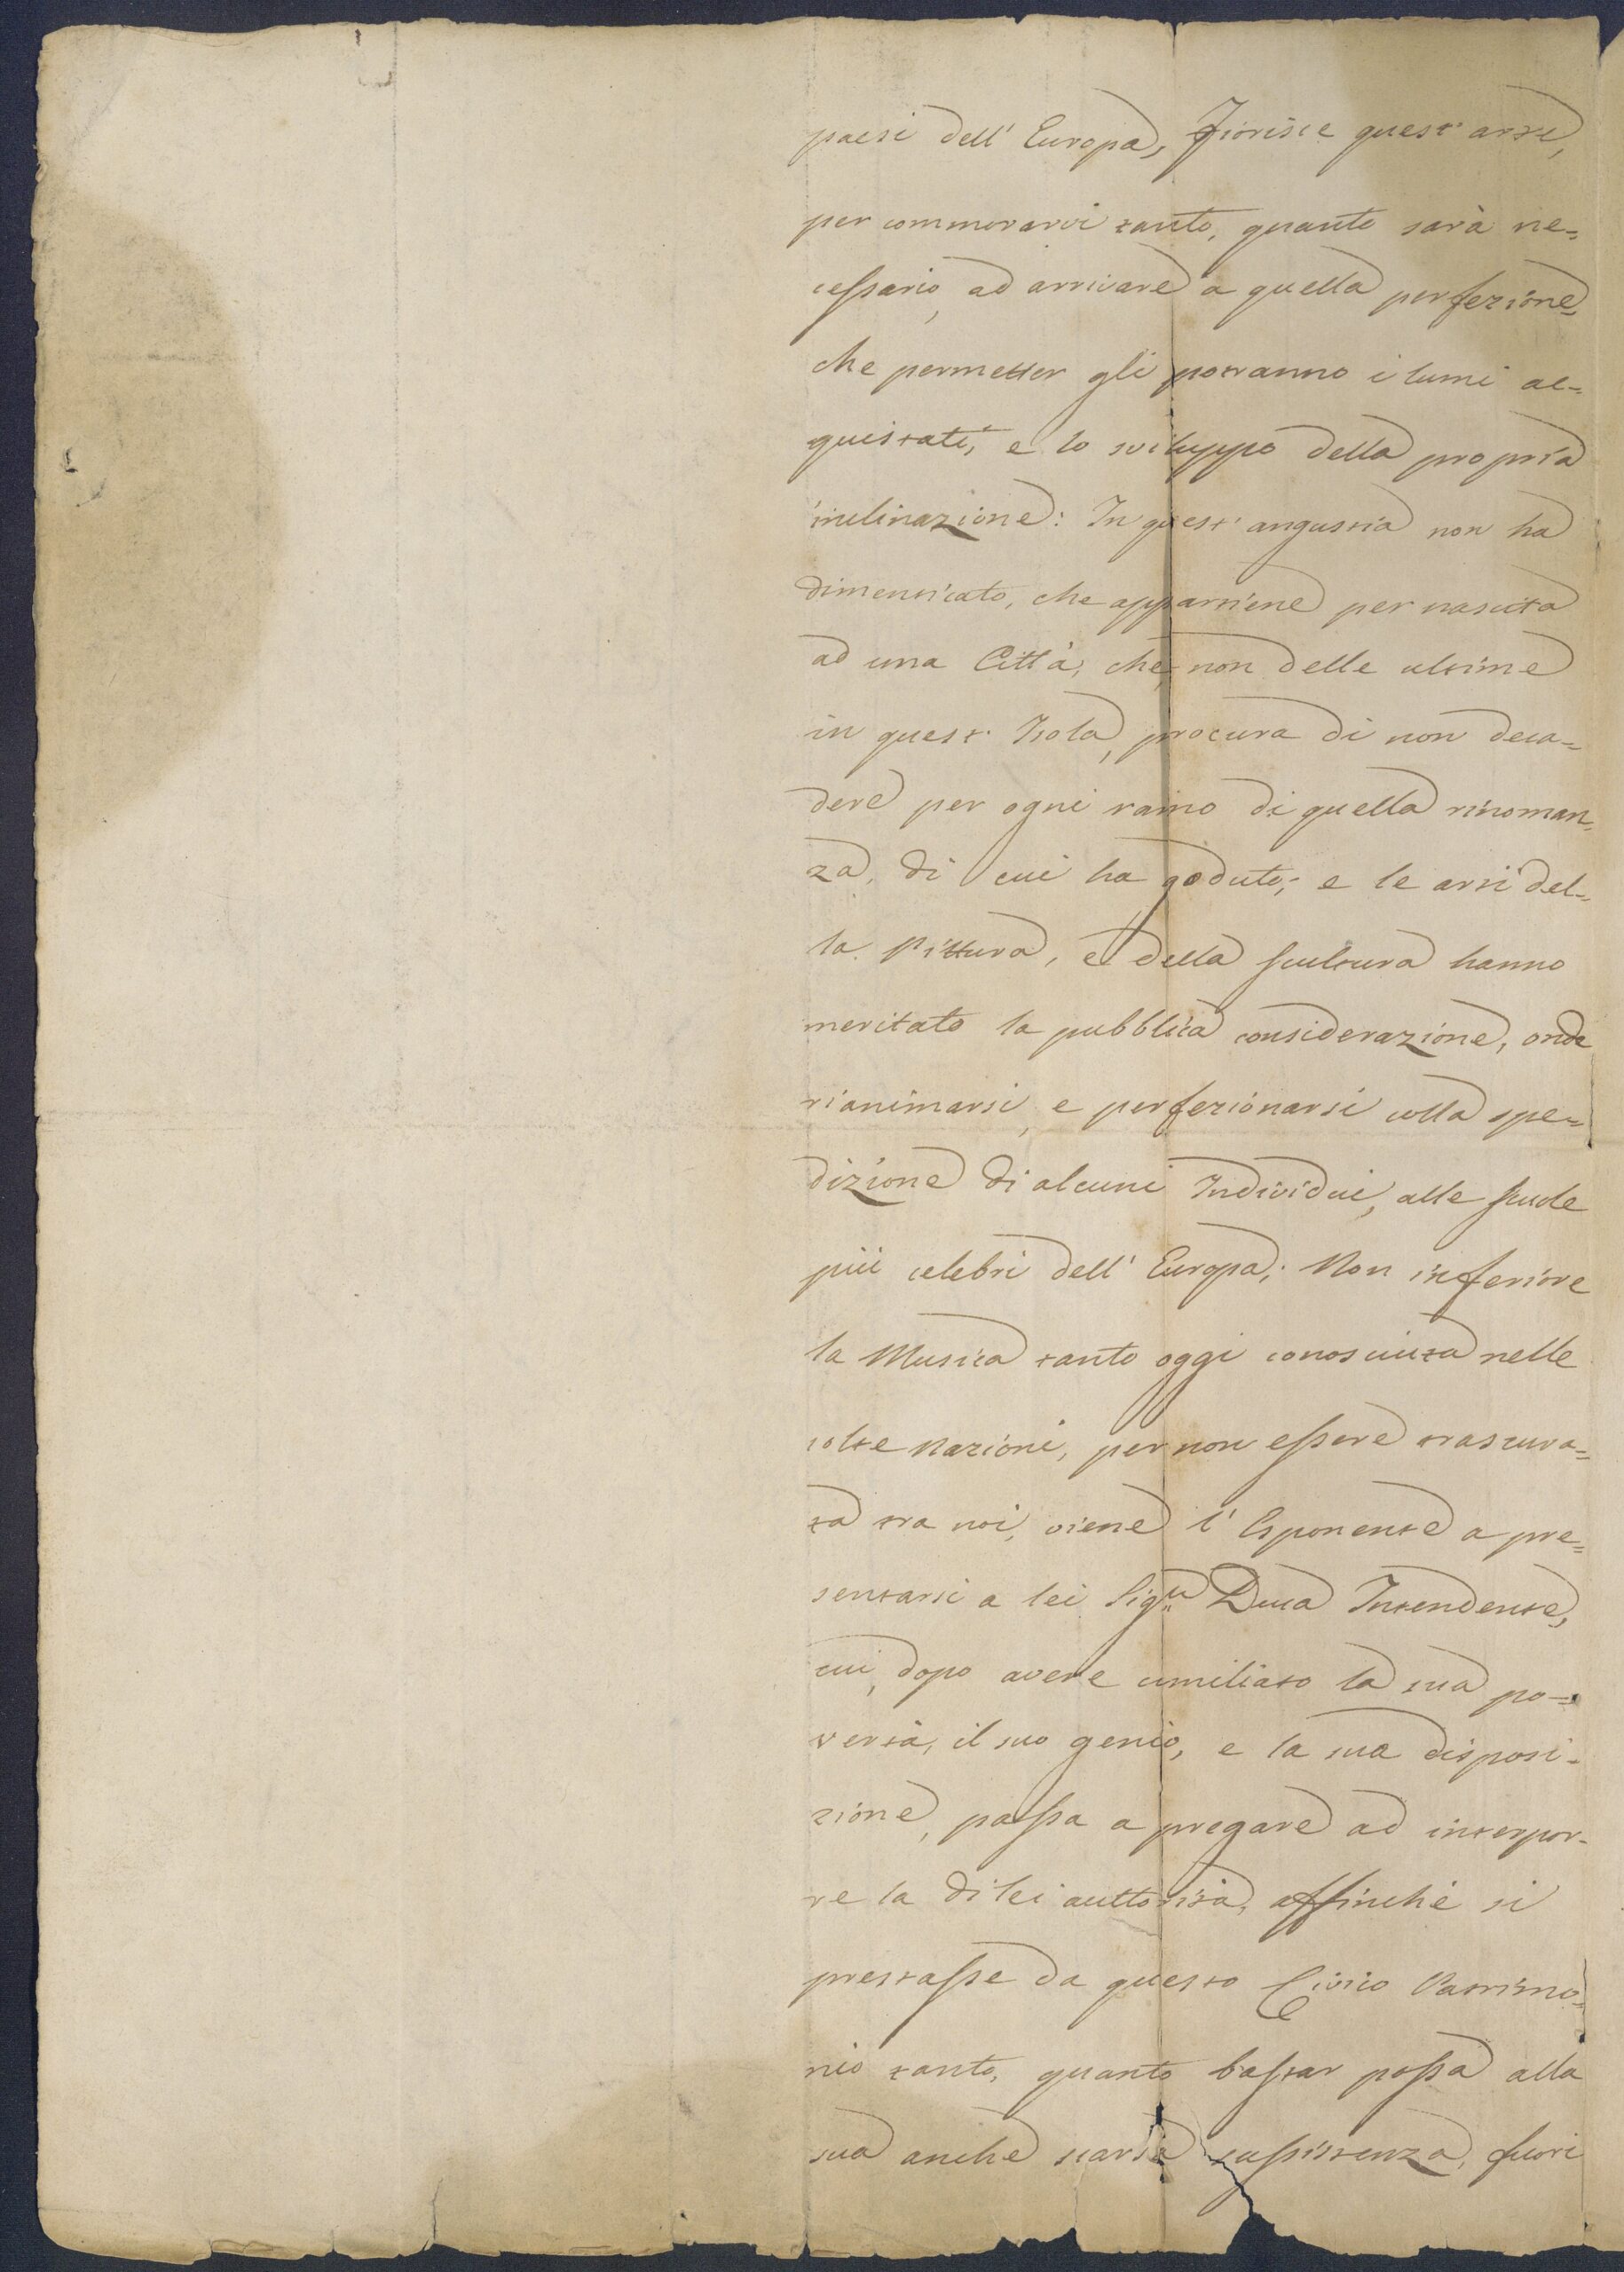 paesi dell' Europa, fiorisce quest' arte,
per commorarvi tanto, quanto sarà ne=
cessario, ad arrivare a quella perfezione,
che permetter gli potranno i lumi ac=
quistati, e lo sviluppo della propria
inclinazione: In quest' angustia non ha
dimenticato, che appartiene per nascita
ad una Città, che non delle ultime
in quest' Isola, procura di non deca=
dere per ogni ramo di quella rinoman=
za, di cui ha goduto; e le arti del=
la Pittura, e della Scultura hanno
meritato la pubblica considerazione, onde
rianimarsi, e perfezionarsi colla spe=
dizione di alcuni Individui, alle Scuole
più celebri dell' Europa; Non inferiore
la Musica tanto oggi conosciuta nelle
colte Nazioni, per non essere trascura=
ta tra noi, viene l' Esponente a pre=
sentarsi a lei Sig.r Duca Intendente,
cui, dopo avere umiliato la sua po=
vertà, il suo genio, e la sua disposi=
zione, passa a pregare ad interpor=
re la di lei auttorità, affinchè si
prestasse da questo Civico Patrimo=
nio tanto, quanto bastar possa alla
sua anche scarsa sussistenza, fuori